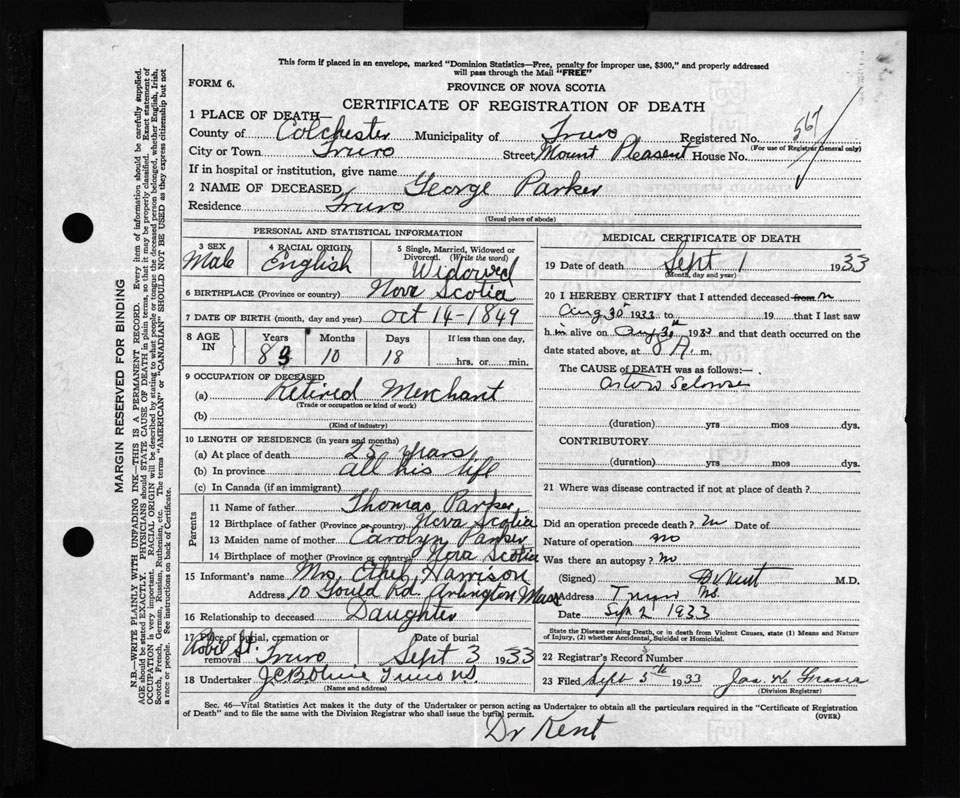 This form if placed in an envelope, marked "Dominion Statistics—Free, penalty for improper use, $300," and properly addressed
will pass through the Mail "FREE"
FORM 6.
PROVINCE OF NOVA SCOTIA
CERTIFICATE OF REGISTRATION OF DEATH
1 PLACE OF DEATH—
County of Colchester Municipality of Truro Registered No. 567
(For use of Registrar General only)
City or Town Truro Street Mount Pleasent House No.
If in hospital or institution, give name
2 NAME OF DECEASED George Parker
Residence Truro
(Usual place of abode)
PERSONAL AND STATISTICAL INFORMATION
3 SEX Male
4 RACIAL ORIGIN English
5 Single, Married, Widowed or
Divorced. (Write the word)
Widowed
6 BIRTHPLACE (Province or country) Nova Scotia
7 DATE OF BIRTH (month, day and year) Oct 14-1849
8 AGE IN
Years Months Days If less than one day,
83 10 18 hrs. or min.
9 OCCUPATION OF DECEASED
(a) Retired Merchant
(Trade or occupation or kind of work)
(b)
(Kind of industry)
10 LENGTH OF RESIDENCE (in years and months)
(a) At place of death 25 years
(b) In province all his life
(c) In Canada (if an immigrant)
Parents
11 Name of father Thomas Parker
12 Birthplace of father (Province or country) Nova Scotia
13 Maiden name of mother Carolyn Parker
14 Birthplace of mother (Province or country) Nova Scotia
15 Informant's name Mrs. Ethel Harrison
Address 10 Gould Rd. Arlington Mass
16 Relationship to deceased Daughter
17 Place of burial, cremation or removal Robie St. Truro
Date of burial Sept 3 1933
18 Undertaker Truro N.S.
(Name and address)
MEDICAL CERTIFICATE OF DEATH
19 Date of death Sept 1 1933
(Month, day and year)
20 I HEREBY CERTIFY that I attended deceased from on
Aug 30 1933 to 19 that I last saw
h im alive on Aug 30th 1933 and that death occurred on the
date stated above, at 8 A. m.
The CAUSE of DEATH was as follows:—
(duration) yrs mos dys.
CONTRIBUTORY
(duration) yrs mos dys.
21 Where was disease contracted if not at place of death?
Did an operation precede death? no Date of
Nature of operation no
Was there an autopsy? no
(Signed) Kent M.D.
Address Truro N.S.
Date Sep 2 1933
State the Disease causing Death, or in death from Violent Causes, state (1) Means and Nature
of Injury, (2) whether Accidental, Suicidal or Homicidal.
22 Registrar's Record Number
23 Filed Sept 5th 1933 Jas. K. Fraser
(Division Registrar)
Sec. 46—Vital Statistics Act makes it the duty of the Undertaker or person acting as Undertaker to obtain all the particulars required in the "Certificate of Registration
of Death" and to file the same with the Division Registrar who shall issue the burial permit.
(OVER)
Dr Kent
MARGIN RESERVED FOR BINDING
N.B.—WRITE PLAINLY WITH UNFADING INK—THIS IS A PERMANENT RECORD. Every item of information should be carefully supplied.
AGE should be stated EXACTLY. PHYSICIANS should STATE CAUSE OF DEATH in plain terms, so that it may be properly classified. Exact statement of
OCCUPATION is very important. RACIAL ORIGIN will be described by stating to what people or tongue the deceased person belonged, whether English, Irish,
Scotch, French, German, Russian, Ruthenian, etc. The terms "AMERICAN" or "CANADIAN" SHOULD NOT BE USED as they express citizenship but not
a race or people. See instructions on back of Certificate.